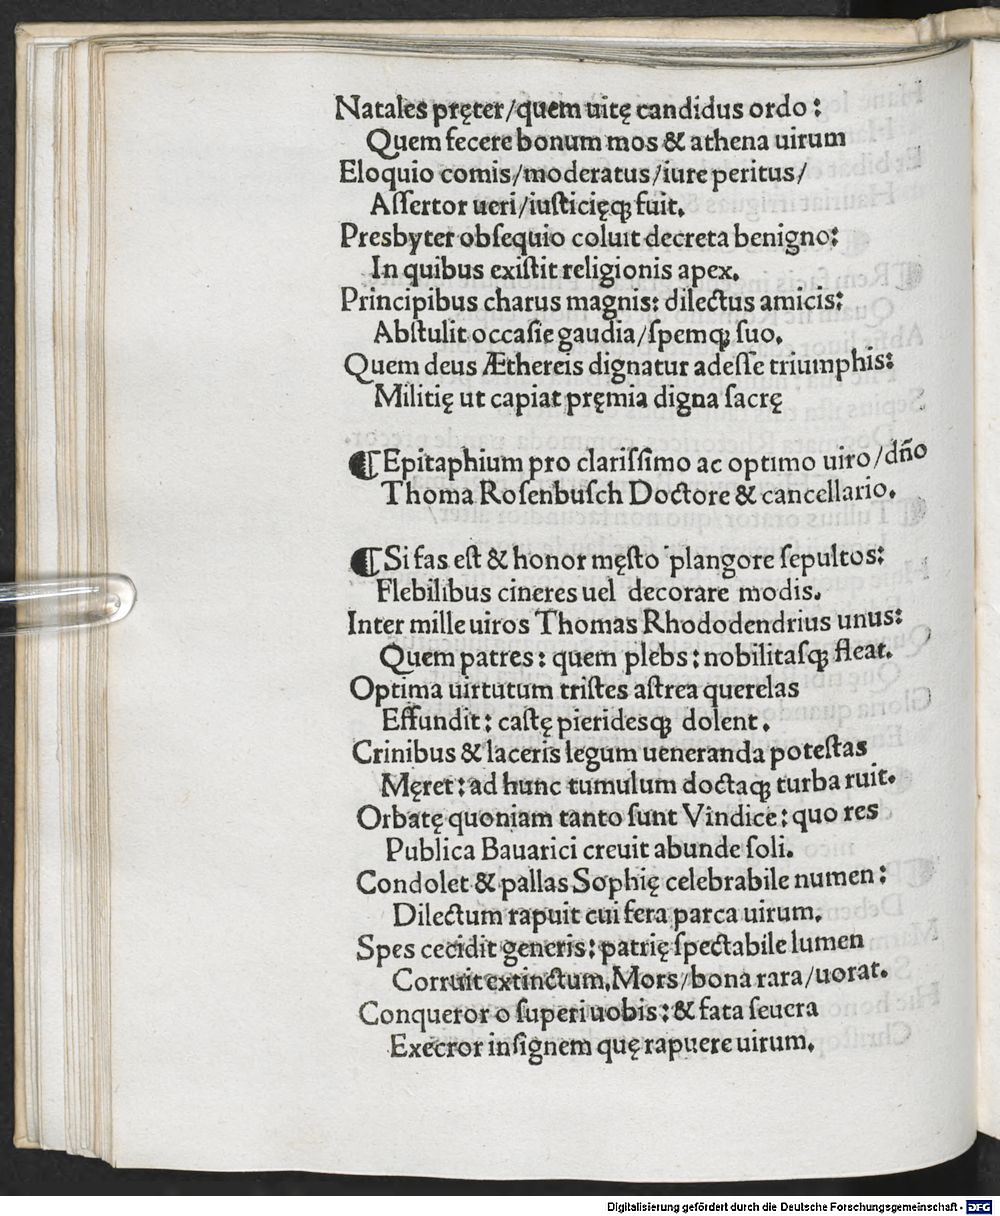 Natales pręter/quem uitę candidus ordo:
Quem fecere bonum mos & athena uirum
Eloquio comis/moderatus/iure peritus/
Aſſertor ueri/iuſticięqꝫ fuit.
Presbyter obſequio coluit decreta benigno:
In quibus exiſtit religionis apex.
Principibus charus magnis: dilectus amicis:
Abſtulit occaſie gaudia/ſpemqꝫ ſuo.
Quem deus Æthereis dignatur adeſſe triumphis:
Militię ut capiat pręmia digna ſacrę
¶Epitaphium pro clariſſimo ac optimo uiro/dño
Thoma Roſenbuſch Doctore & cancellario.
¶Si fas eſt & honor męſto plangore ſepultos:
Flebilibus cineres uel decorare modis.
Inter mille uiros Thomas Rhododendrius unus:
Quem patres: quem plebs: nobilitaſqꝫ fleat.
Optima uirtutum triſtes aſtrea querelas
Effundit: caſtę pieridesqꝫ dolent.
Crinibus & laceris legum ueneranda poteſtas
Męret: ad hunc tumulum doctaqꝫ turba ruit.
Orbatę quoniam tanto ſunt Vindice: quo res
Publica Bauarici creuit abunde ſoli.
Condolet & pallas Sophię celebrabile numen:
Dilectum rapuit cui fera parca uirum.
Spes cecidit generis: patrię ſpectabile lumen
Corruit extinctum. Mors/bona rara/uorat.
Conqueror o ſuperi uobis: & fata ſeuera
Execror inſignem quę rapuere uirum.
Digitalisierung gefördert durch die Deutsche Forschungsgemeinschaft - DFG